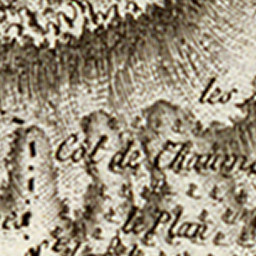 les
Col de Chaum
le Plan
es